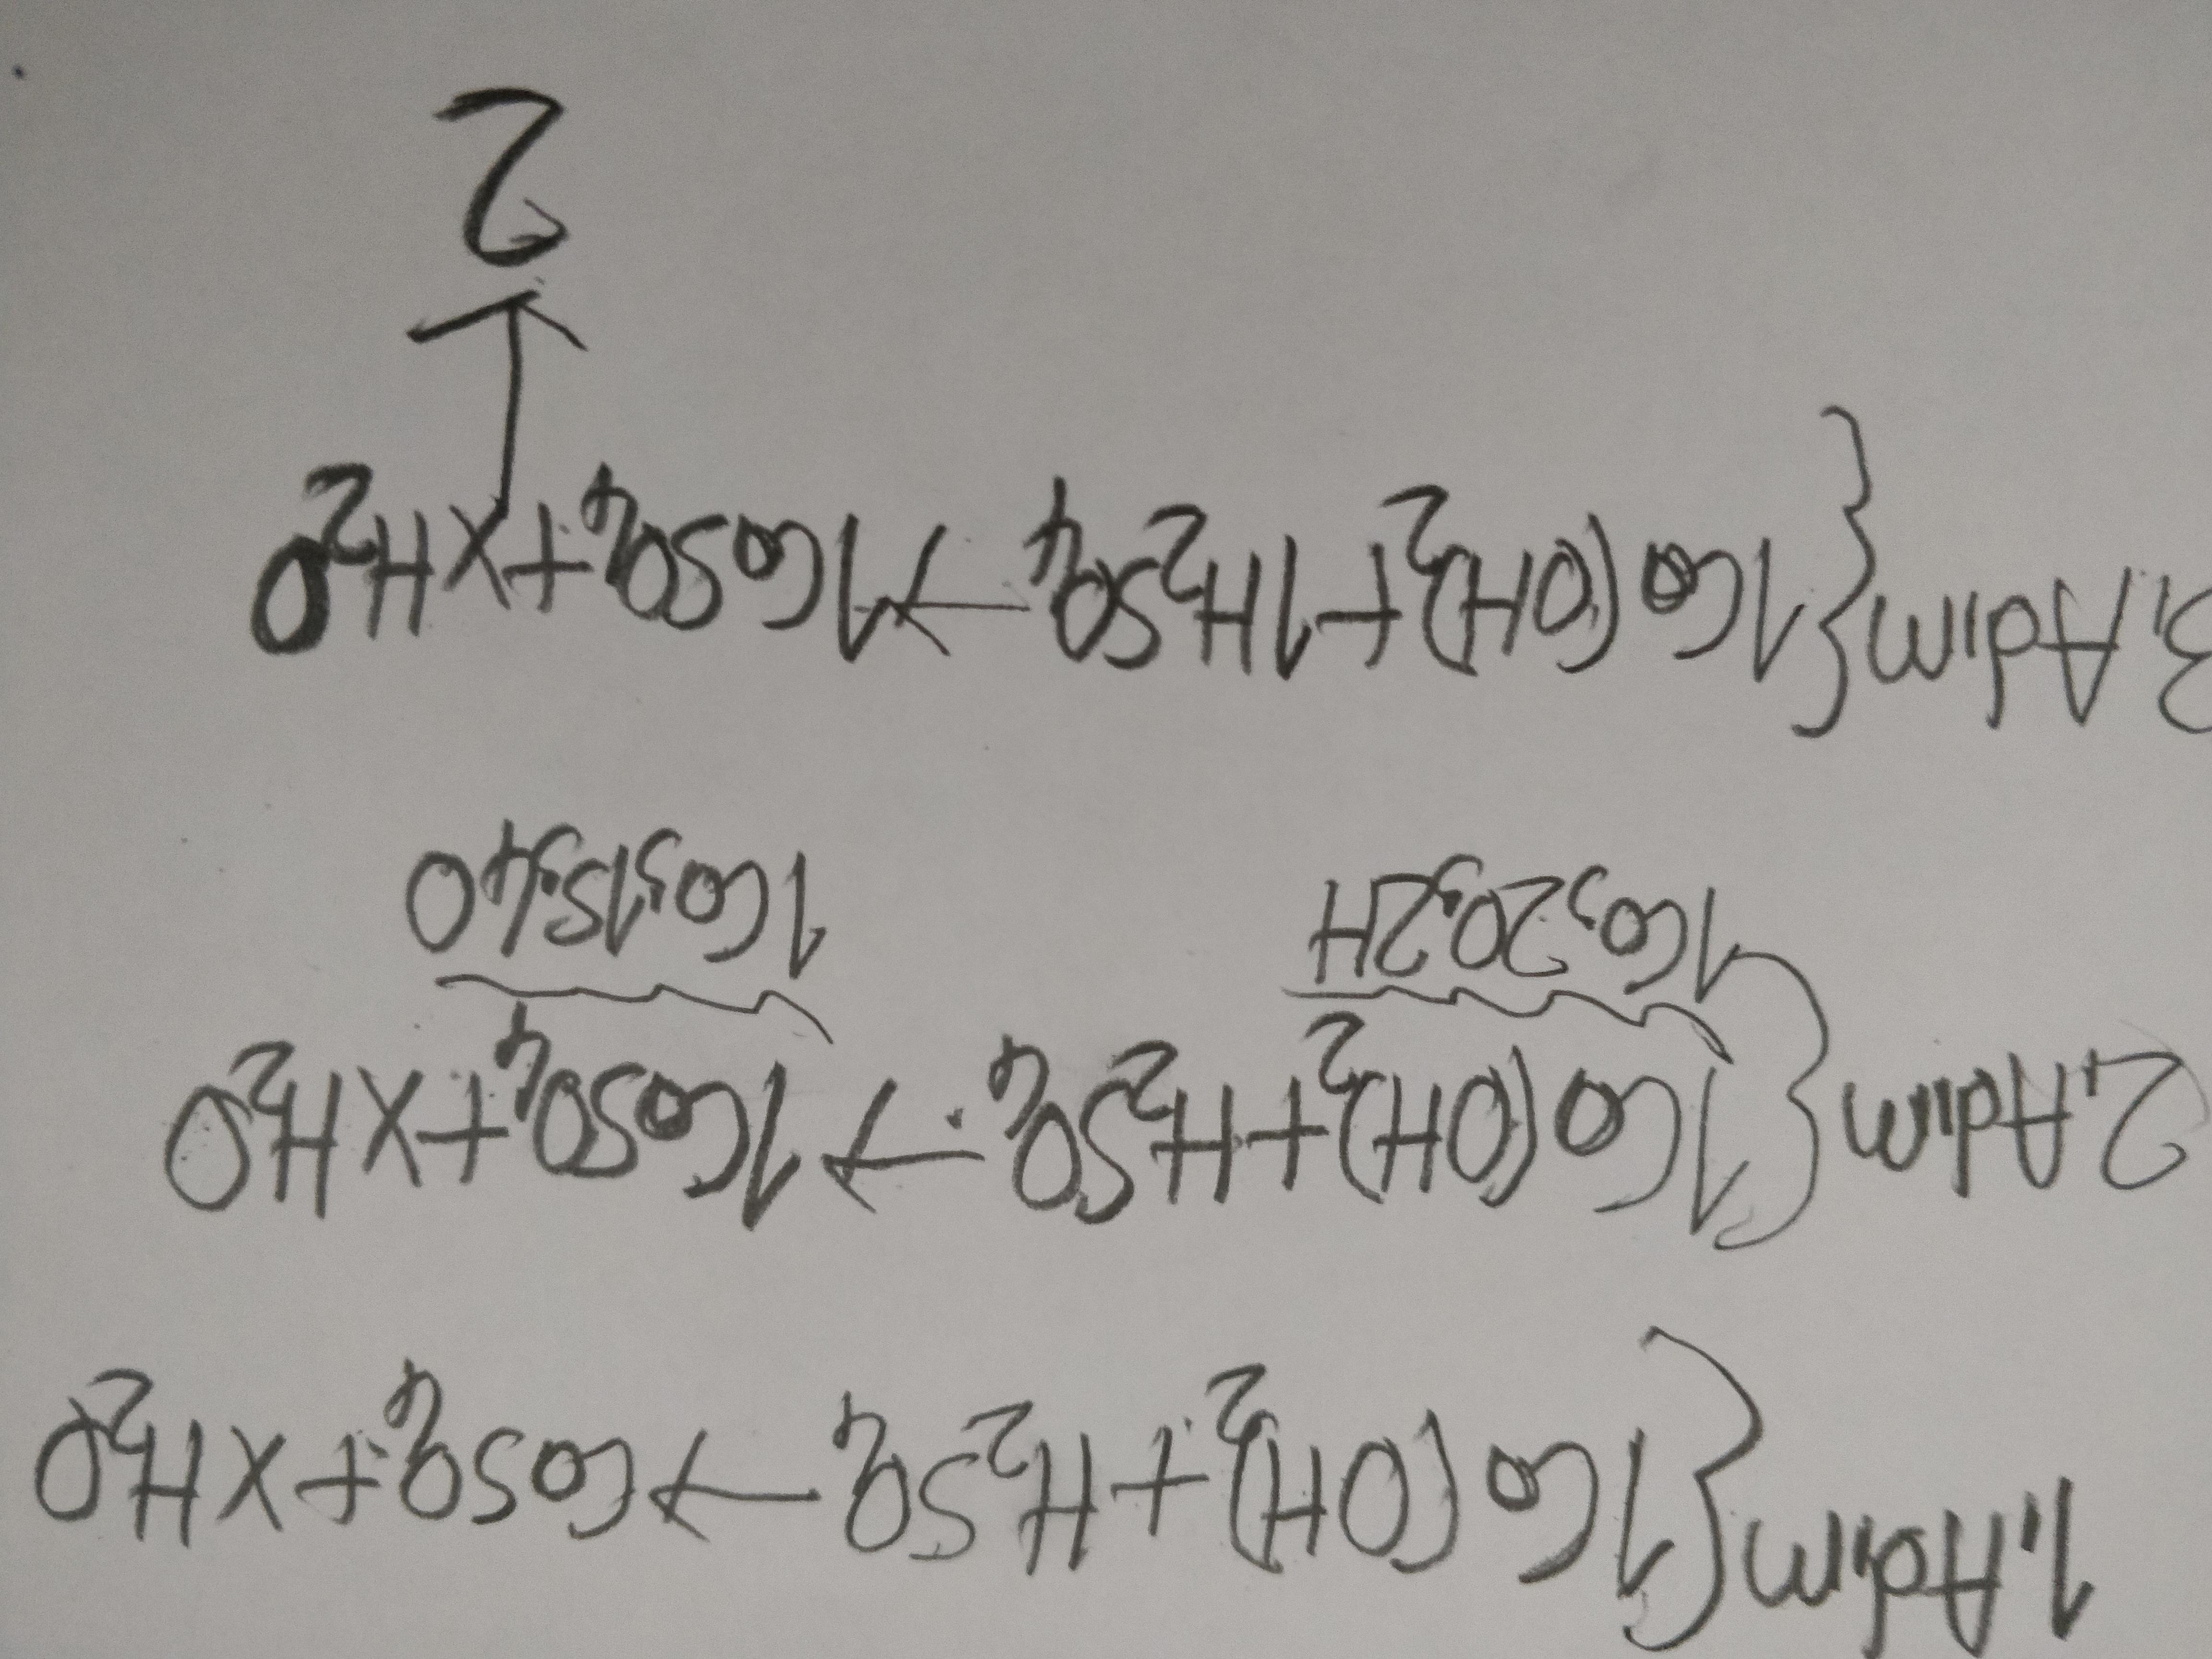 1.Adım{1Co(OH)₂+H₂SO₄→CoSO₄+XH₂O
2.Adım{1Co(OH)₂+H₂SO₄→1CoSO₄+XH₂O
1Co,2O,2H 1Co,1S,4O
3.Adım{1Co(OH)₂+1H₂SO₄→1CoSO₄+XH₂O
2